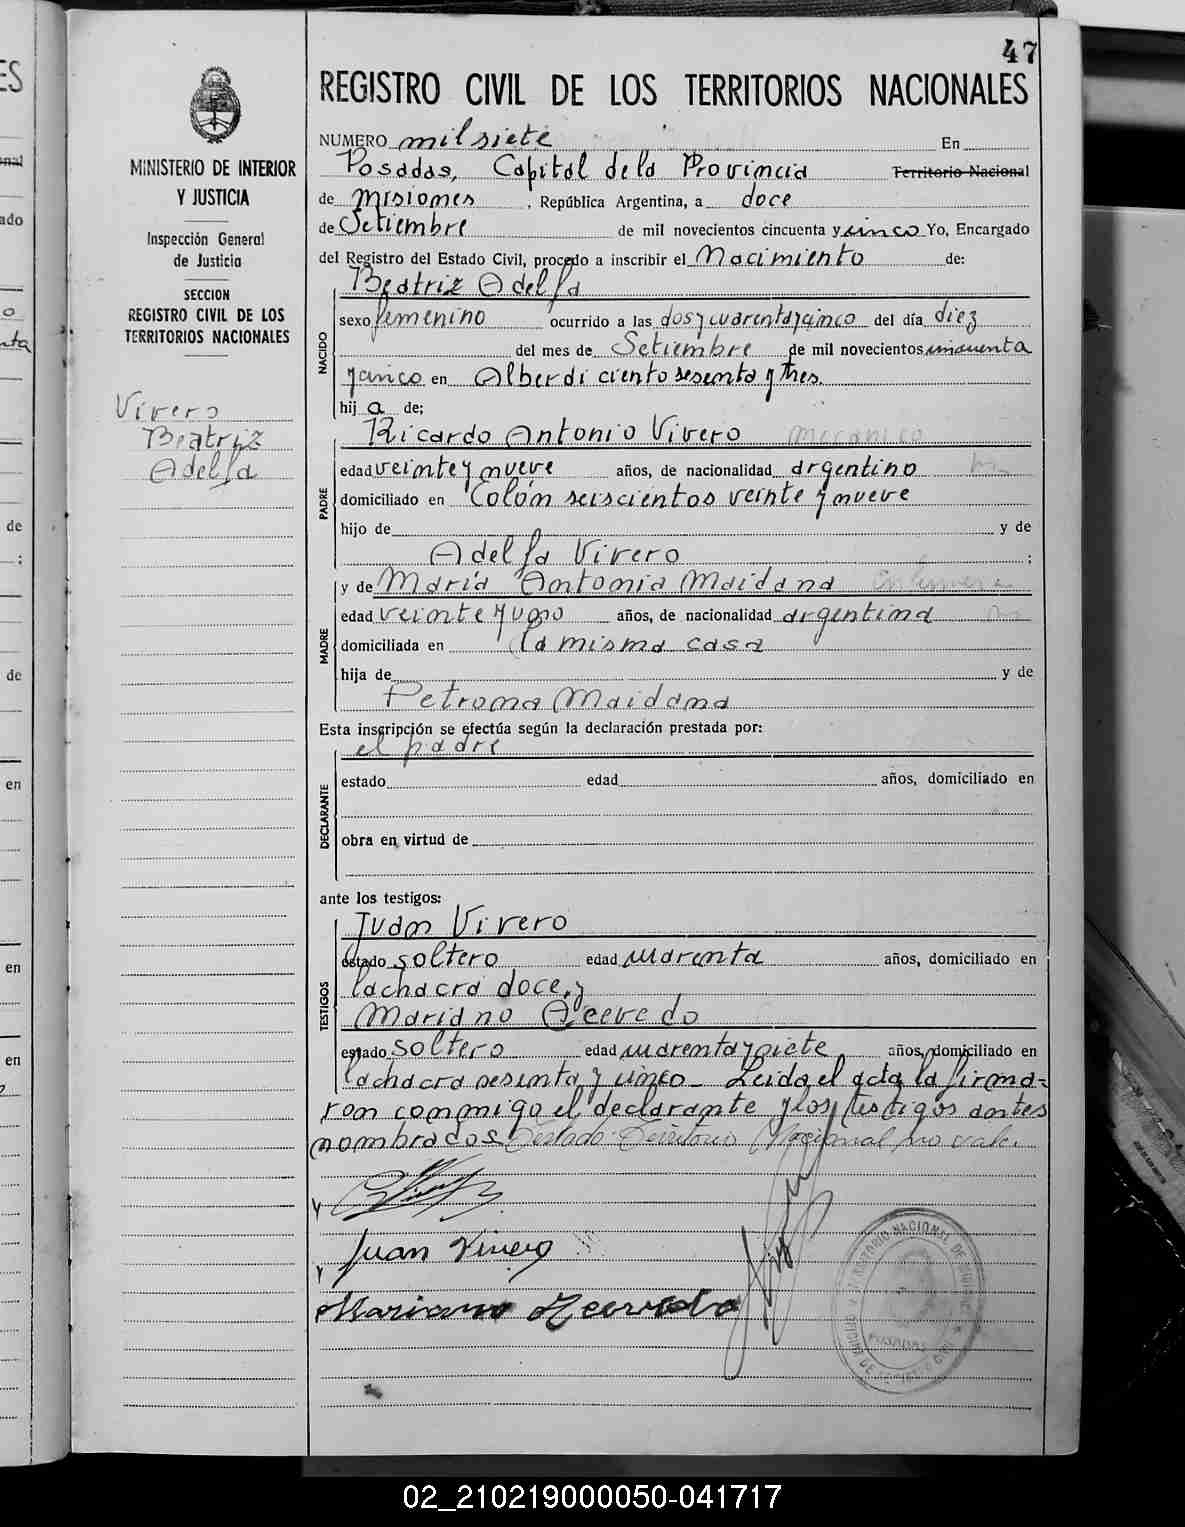 47
REGISTRO CIVIL DE LOS TERRITORIOS NACIONALES
MINISTERIO DE INTERIOR
Y JUSTICIA
Inspección General
de Justicia
SECCION
REGISTRO CIVIL DE LOS
TERRITORIOS NACIONALES
Vivero
Beatriz
Adelfa
NUMERO mil siete En
Posadas, Capital de la Provincia Territorio Nacional
de Misiones, República Argentina, a doce
de Setiembre de mil novecientos cincuenta y cinco Yo, Encargado
del Registro del Estado Civil, procedo a inscribir el Nacimiento de:
Beatriz Adelfa
NACIDO
sexo femenino ocurrido a las dos y cuarenta y cinco del día diez
del mes de Setiembre de mil novecientos cincuenta
y cinco en Alberdi ciento sesenta y tres.
hija de;
Ricardo Antonio Vivero mecánico
PADRE
edad veinte y nueve años, de nacionalidad argentino
domiciliado en Colón seiscientos veinte y nueve
hijo de y de
Adelfa Vivero ;
y de María Antonia Maidana
MADRE
edad veinte y uno años, de nacionalidad argentina
domiciliada en la misma casa
hija de y de
Petrona Maidana
Esta inscripción se efectúa según la declaración prestada por:
el padre
DECLARANTE
estado edad años, domiciliado en
obra en virtud de
ante los testigos:
Juan Vivero
TESTIGOS
estado soltero edad cuarenta años, domiciliado en
la chacra doce, y
Mariano Acevedo
estado soltero edad cuarenta y siete años, domiciliado en
la chacra sesenta y cinco_ Leida el acta la firma-
ron conmigo el declarante y los testigos antes
nombrados. Testado: Territorio Nacional no vale.
Juan Vivero
Mariano Acevedo
TERRITORIO NACIONAL DE MISIONES
POSADAS
OFICINA DE REGISTRO CIVIL
02_210219000050-041717